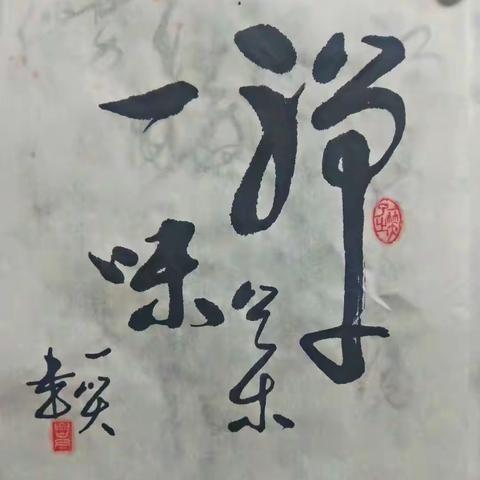 禅茶
一味
一笑